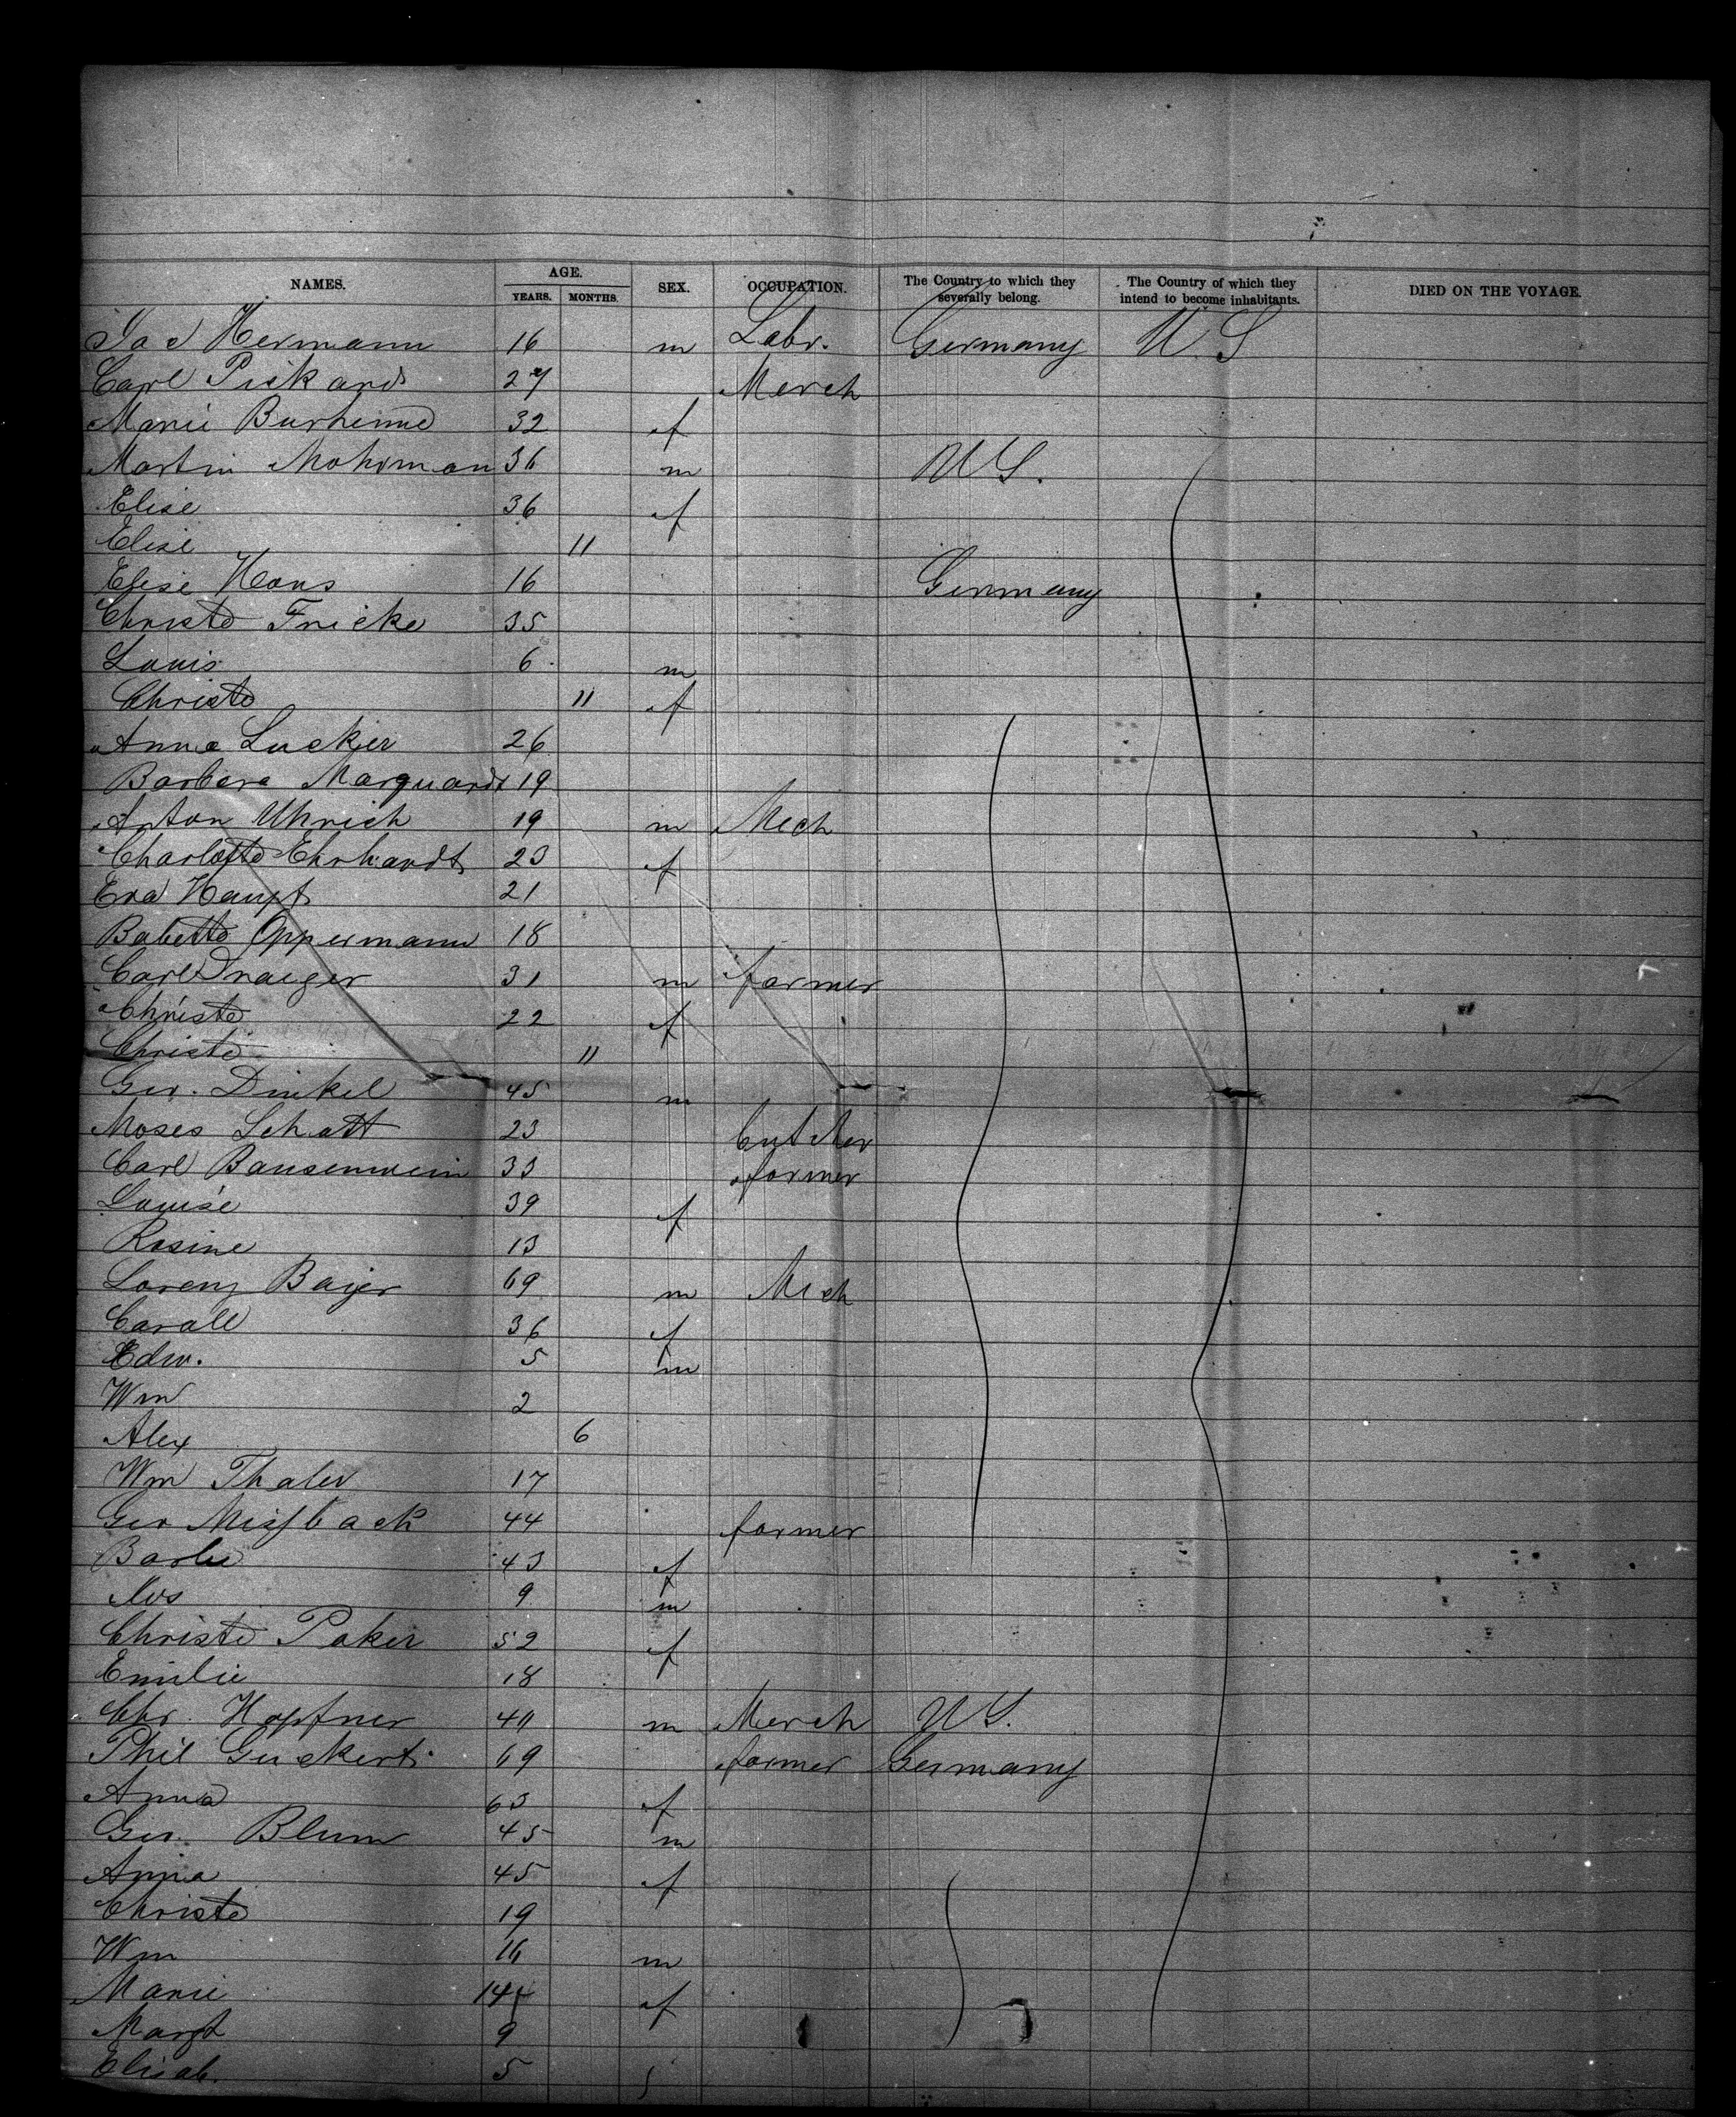 NAMES. AGE. YEARS. MONTHS. SEX. OCCUPATION. The Country to which they severally belong. The Country of which they intend to become inhabitants. DIED ON THE VOYAGE.
Hermann 16 m Labr. Germany U.S
Carl Pickard 27 Merch
Marie Burhenne 32 f
Martin Mohrman 36 m US.
Elise 36 f
Elise 11
Elise Hans 16 Germany
Christe Fricke 35
Louis 6 m
Christe 11 f
Anna Lucker 26
Barbara Marquardt 19
Anton Uhrich 19 m Mech
Charlotte Ehrhardt 23 f
Eva Haupt 21
Babette Oppermann 18
Carl Draeger 31 m farmer
Christe 22 f
Christe 11
Geo. Dinkel 45 m
Moses Schatt 23 butcher
Carl Bausenwein 33 farmer
Louise 39 f
Rosine 13
Lorenz Baijer 69 m Mech
Caroll 36 f
Edw. 5 m
Wm 2
Alex 6
Wm Thaler 17
Geo Missbach 44 farmer
Barbe 43 f
9 m
Christe Paker 52 f
Emilie 18
Chr. Hopfner 40 m Merch US.
Phil Guckert 69 farmer Germany
Anna 63 f
Geo. Blum 45 m
Anna 45 f
Christe 19
Wm 16 m
Marie 14 f
Margt 9
Elisab. 5